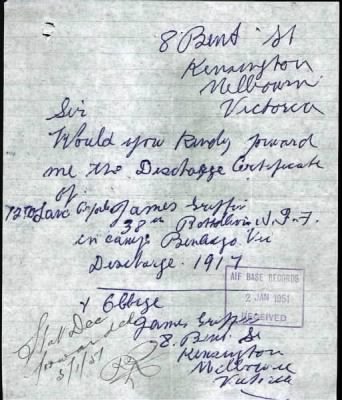 8 Bent St
Kensington
Melbourn
Victoria
Sir
Would you kindly forward
me the Discharge Certificate
of
James Griffin
38th Battalion
in camp Bendigo Vic
Discharge. 1917
& Oblige
James Griffin
8. Bent. St
Kensington
Melbourne
Victoria
AIF BASE RECORDS
2 JAN 1951
RECEIVED
Stat Dec
forwarded
3/1/51